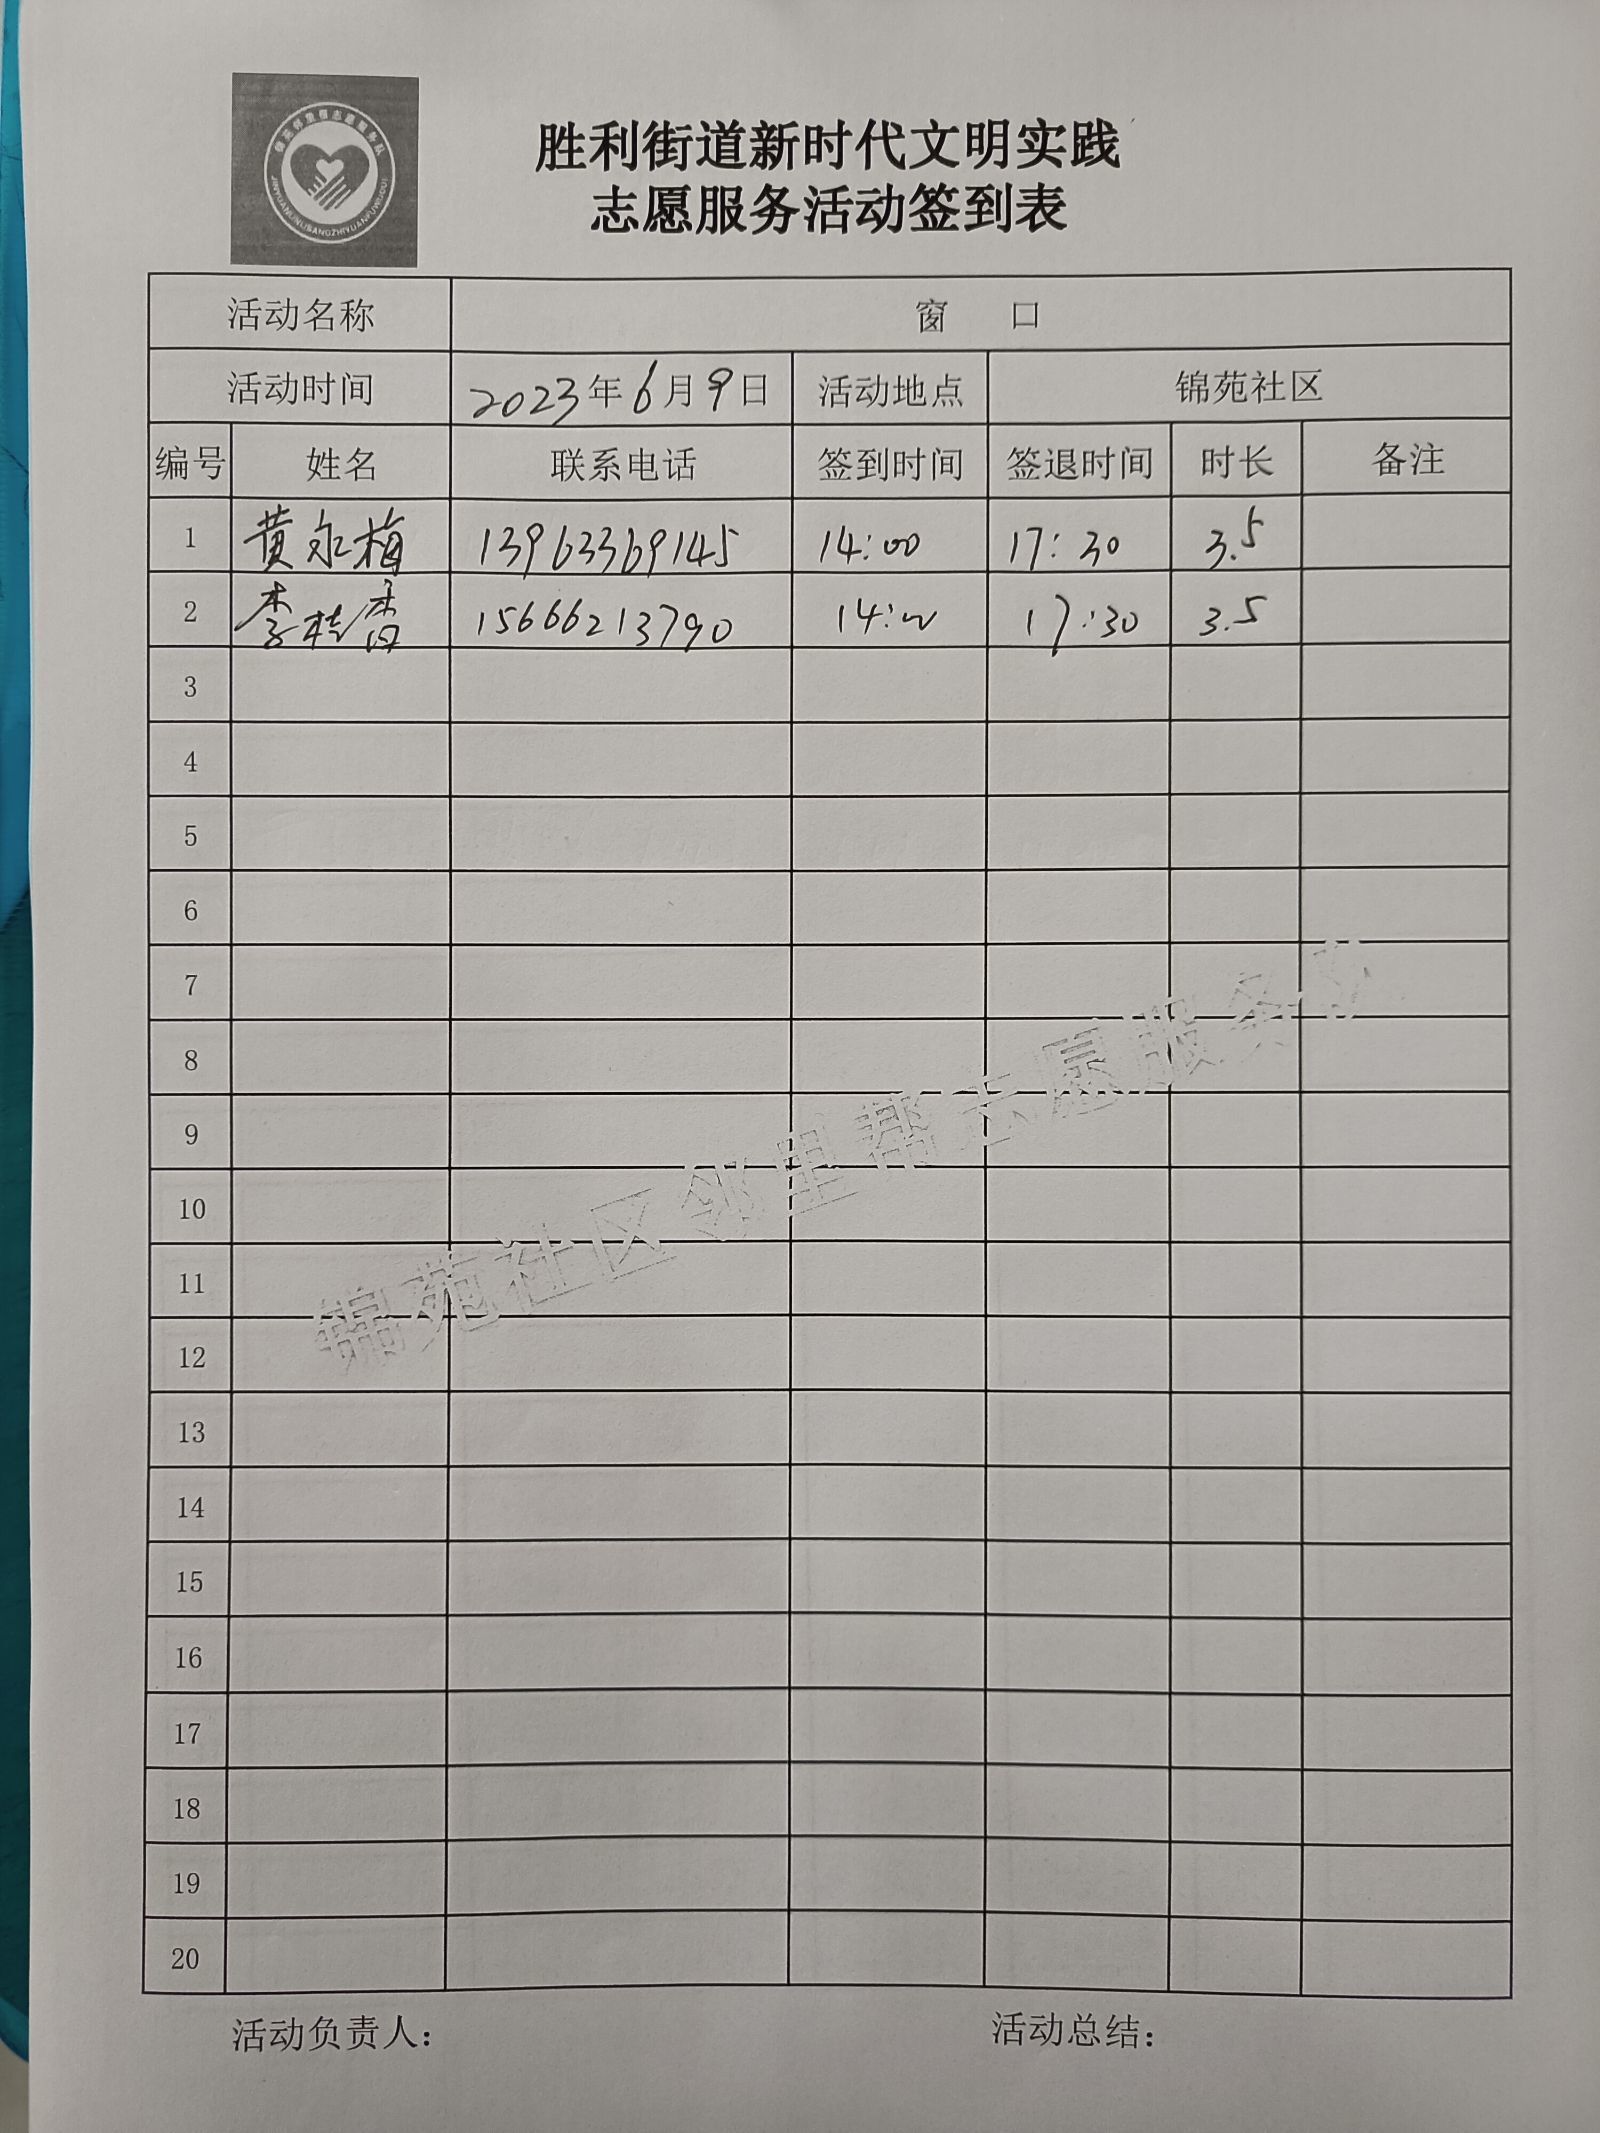 锦苑邻里帮志愿服务队
JINYUANLINLIBANGZHIYUANFUWUDUI
胜利街道新时代文明实践
志愿服务活动签到表
活动名称 窗 口
活动时间 2023年6月9日 活动地点 锦苑社区
编号 姓名 联系电话 签到时间 签退时间 时长 备注
1 黄永梅 13963369145 14:00 17:30 3.5
2 李桂香 15666213790 14:00 17:30 3.5
3
4
5
6
7
8
9
10
11
12
13
14
15
16
17
18
19
20
锦苑社区邻里帮志愿服务队
活动负责人: 活动总结: